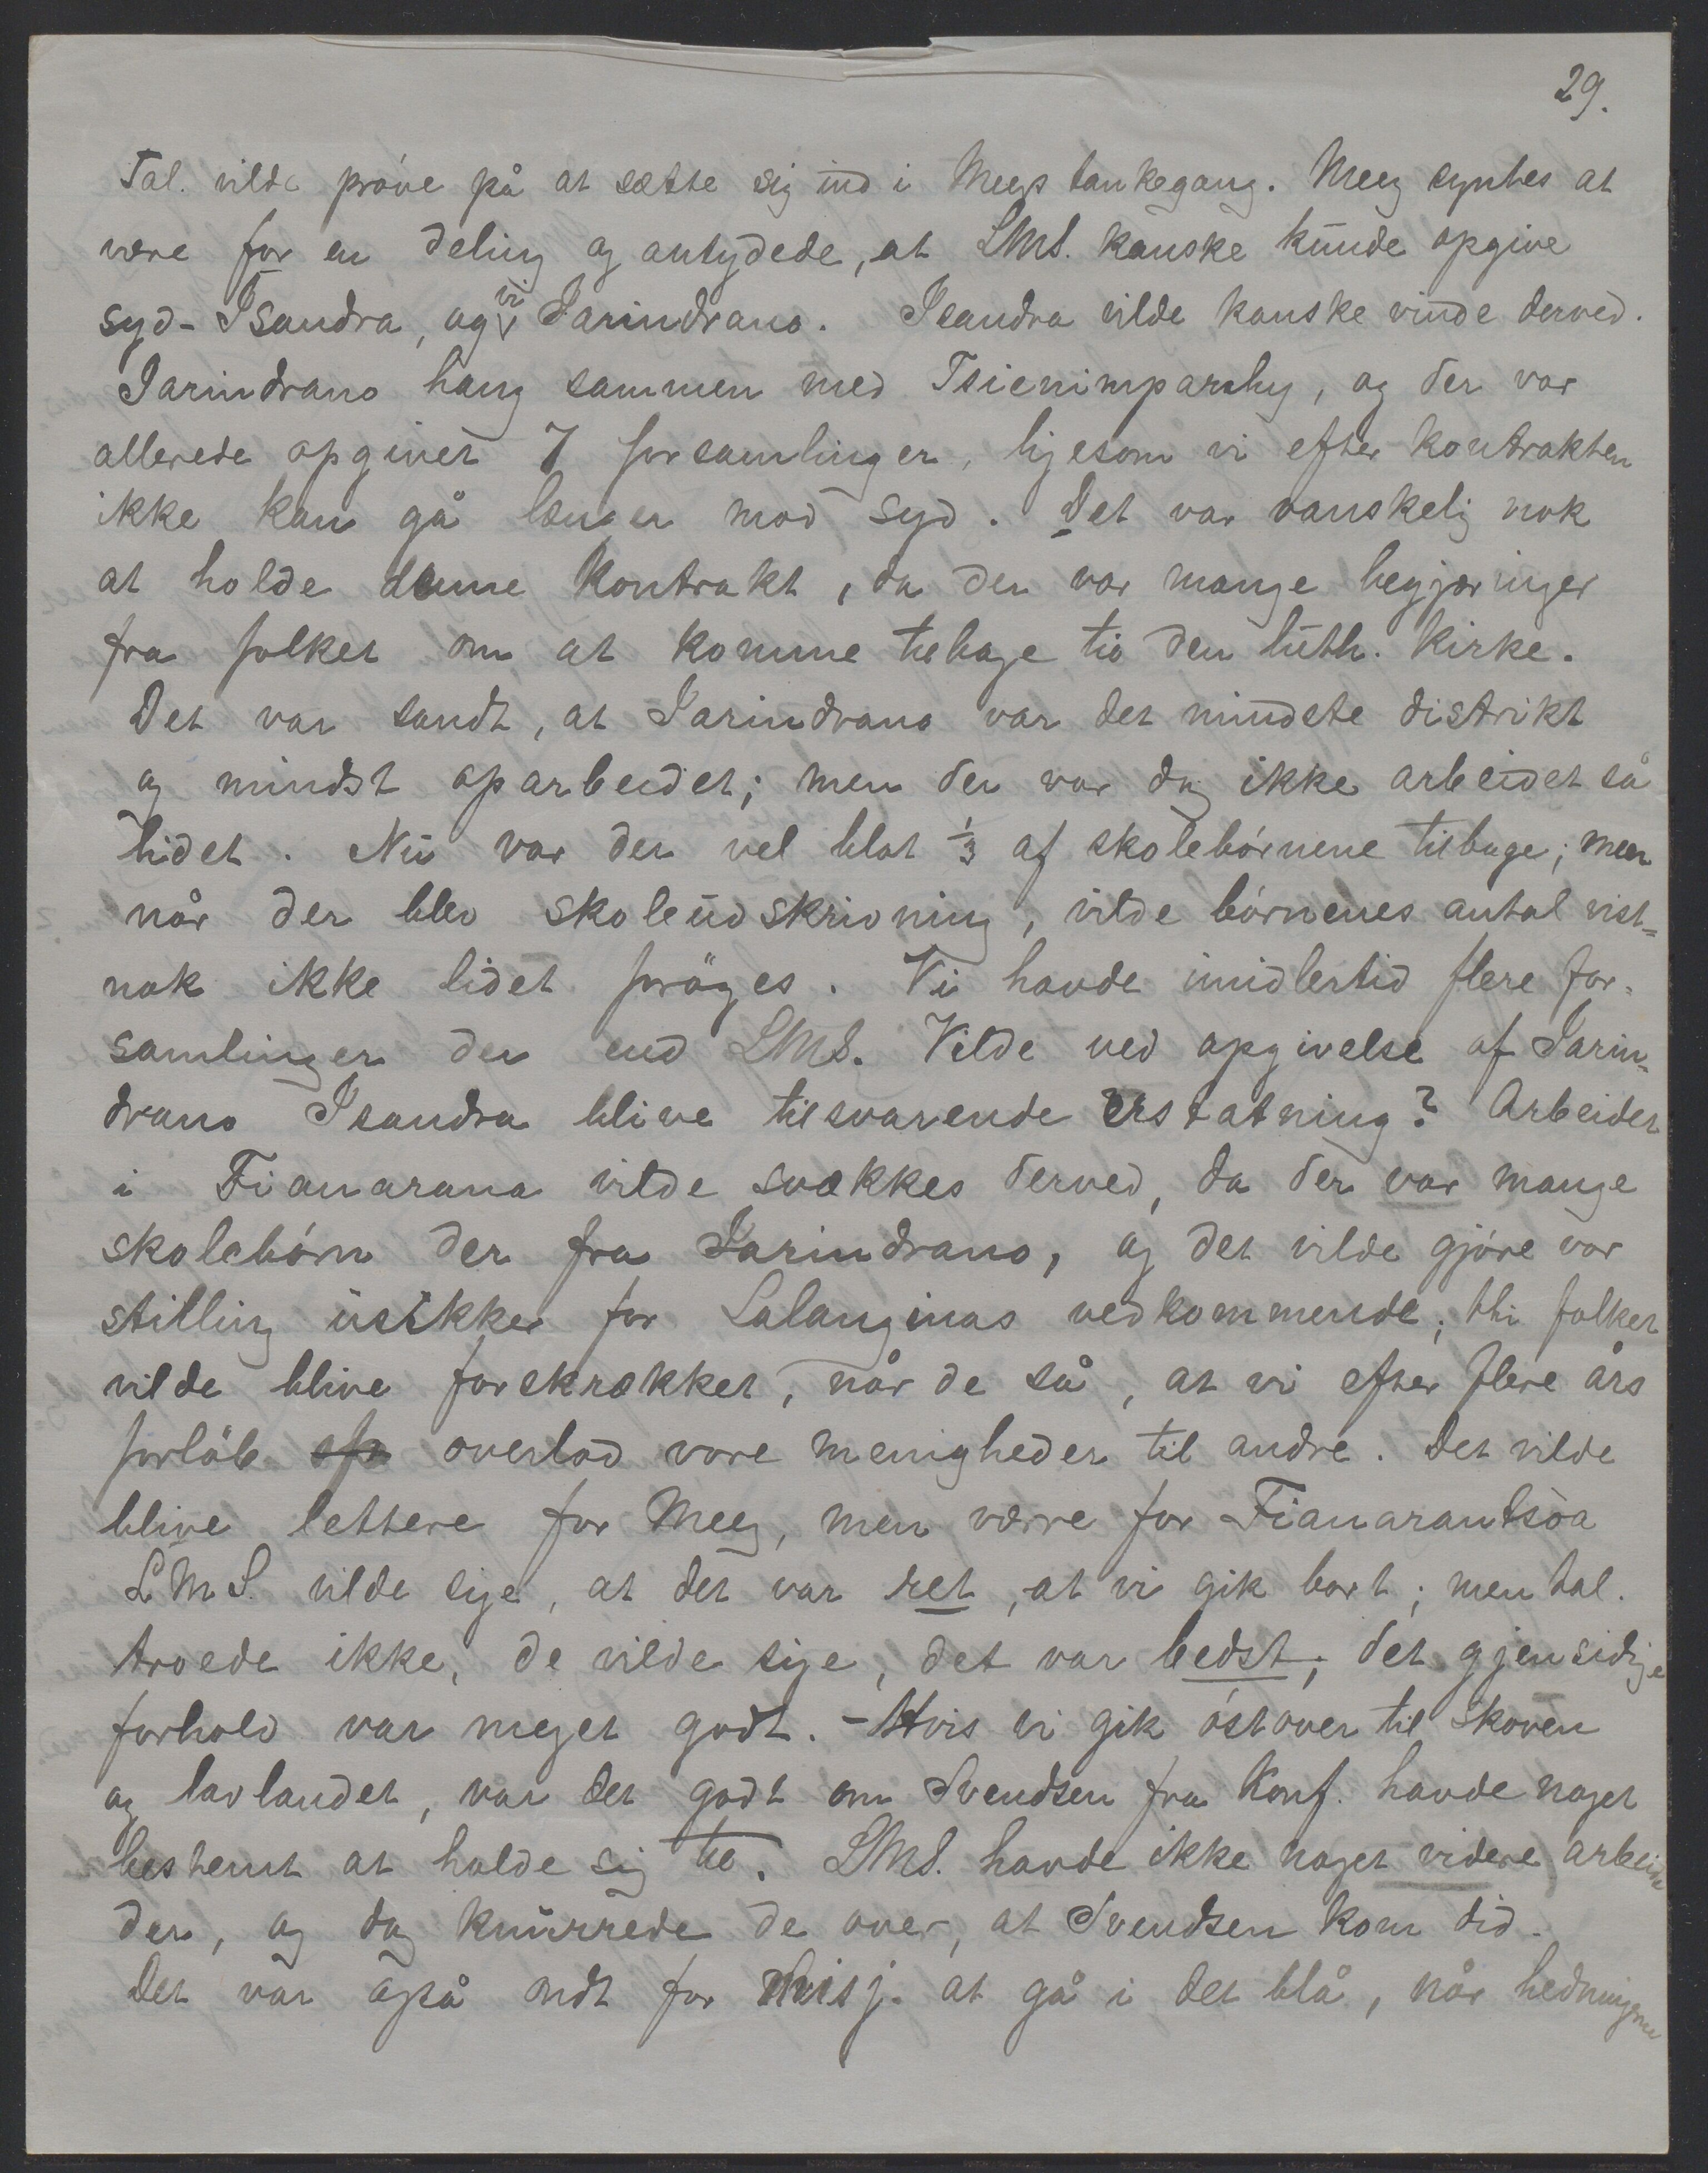 29.
Tal. vilde prøve på at sætte sig ind i Meegs tankegang. Meeg syntes at
være for en deling og antydede, at LMS. kanske kunde opgive
syd-Isandra, og vi Iarindrano. Isandra vilde kanske vinde derved.
Iarindrano hang sammen med Tsienimparihy, og der var
allerede opgivet 7 forsamlinger, ligesom vi efter kontrakten
ikke kan gå længer mod syd. Det var vanskelig nok
at holde denne kontrakt, da der var mange begjæringer
fra folket om at komme tilbage til den luth. kirke.
Det var sandt, at Iarindrano var det mindste distrikt
og mindst oparbeidet; men der var dog ikke arbeidet så
lidet. Nu var der vel blot 1/3 af skolebørnene tilbage; men
når der blev skoleudskrivning, vilde børnenes antal vist=
nok ikke lidet forøges. Vi havde imidlertid flere for-
samlinger der end LMS. Vilde ved opgivelse af Iarin-
drano Isandra blive tilsvarende erstatning? Arbeidet
i Fianarana vilde svækkes derved, da der var mange
skolebørn der fra Iarindrano, og det vilde gjøre vor
stilling usikker for Lalanginas vedkommende; thi folket
vilde blive forskrækket, når de så, at vi efter flere års
forløb overlod vore menigheder til andre. Det vilde
blive lettere for Meeg, men værre for Fianarantsoa
LMS. vilde sige, at det var ret, at vi gik bort; men tal.
troede ikke, de vilde sige, det var bedst; det gjensidige
forhold var meget godt. - Hvis vi gik østover til skoven
og lavlandet, var det godt om Svendsen fra Konf. havde noget
bestemt at holde sig til. LMS. havde ikke noget videre arbeide
der, og dog knurrede de over, at Svendsen kom did.
Det var også ondt for misj. at gå i det blå, når hedningerne